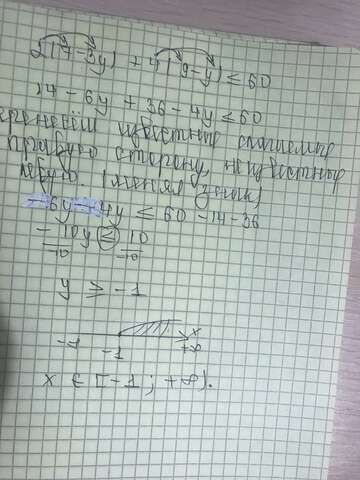 2(7-3y) + 4(9-y) ≤ 60
14 - 6y + 36 - 4y ≤ 60
еренесём известные слагаемые
правую сторону, неизвестные
левую. (меняя знак)
-6y - 4y ≤ 60 - 14 - 36
-10y ≥ 10
-10 -10
y ≥ -1
x
-∞ -1 +∞
x ∈ [-1; +∞).